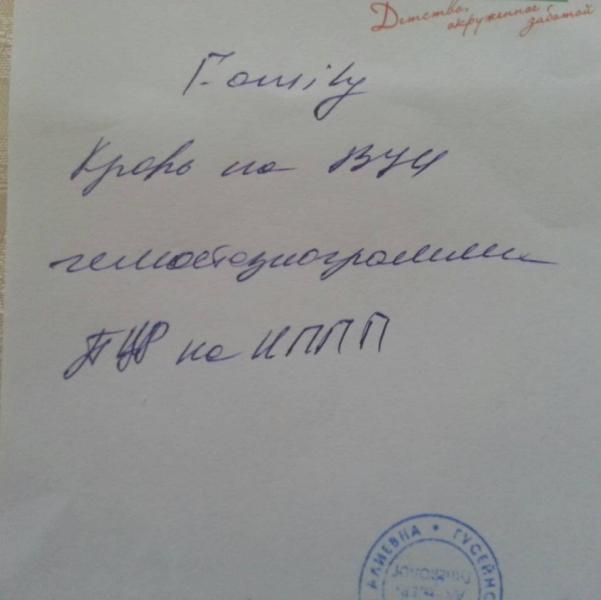 Детство,
окруженное
заботой
Family
Кровь на ВУИ
гемостазиограмма
ПЦР на ИППП
АЛИЕВНА • ГУСЕЙНО